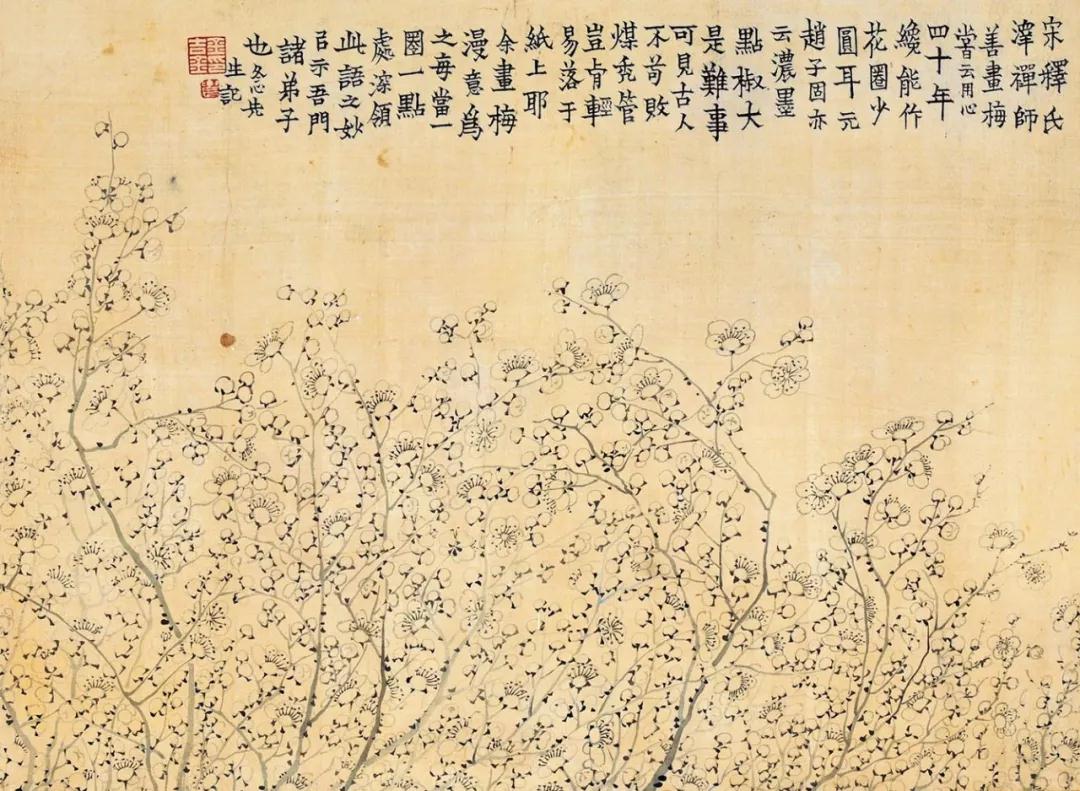 宋釋氏
澤禪師
善畫梅
嘗云用心
四十年
纔能作
花圈少
圓耳元
趙子固亦
云濃墨
點椒大
是難事
可見古人
不苟敗
煤禿管
豈肯輕
易落于
紙上耶
余畫梅
漫意爲
之每當一
圈一點
處深領
此語之妙
㠯示吾門
諸弟子
也冬心先
生記